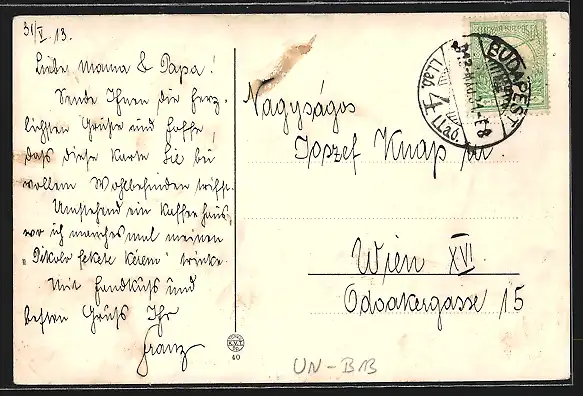 31/V. 13.
Liebe Mama & Papa!
Sende Ihnen die herz-
lichsten Grüße und hoffe,
daß diese Karte Sie bei
vollem Wohlbefinden trifft.
Umstehend ein Kaffeehaus,
wo ich manches mal meinen
„Pikolo fekete kérem" trinke.
Mit Handkuß und
besten Gruß Ihr
Franz
Nagyságos
Jozsef Knap úr.
Wien XVI
Odoakergasse 15
BUDAPEST
4
K.V.T.
40
UN-B13